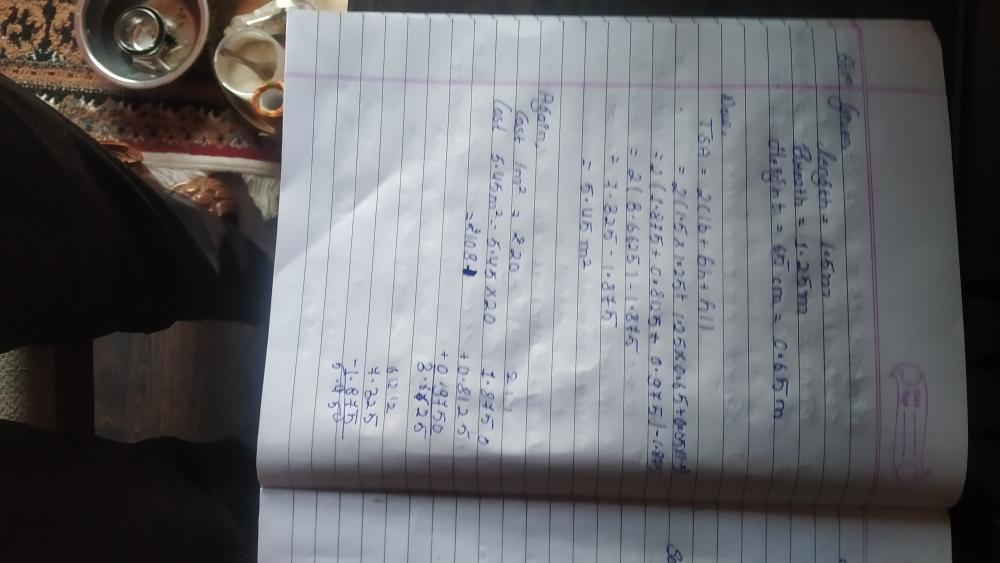 Given length = 1.5m
Breath = 1.25m
height = 65 cm = 0.65m
Now,
TSA = 2(lb + bh + hl)
= 2(1.5 x 1.25 + 1.25 x 0.65 + 0.65x1.5)
= 2(1.875 + 0.8125 + 0.975) - 1.875
= 2(3.6625) - 1.875
= 7.325 - 1.875
= 5.45 m2
Again,
Cost 1m2 = ₹20
Cost 5.45m2 = 5.45 x 20
= ₹109
1.8750
+0.8125
+0.9750
3.6625
6 12 12
7.325
-1.875
5.450